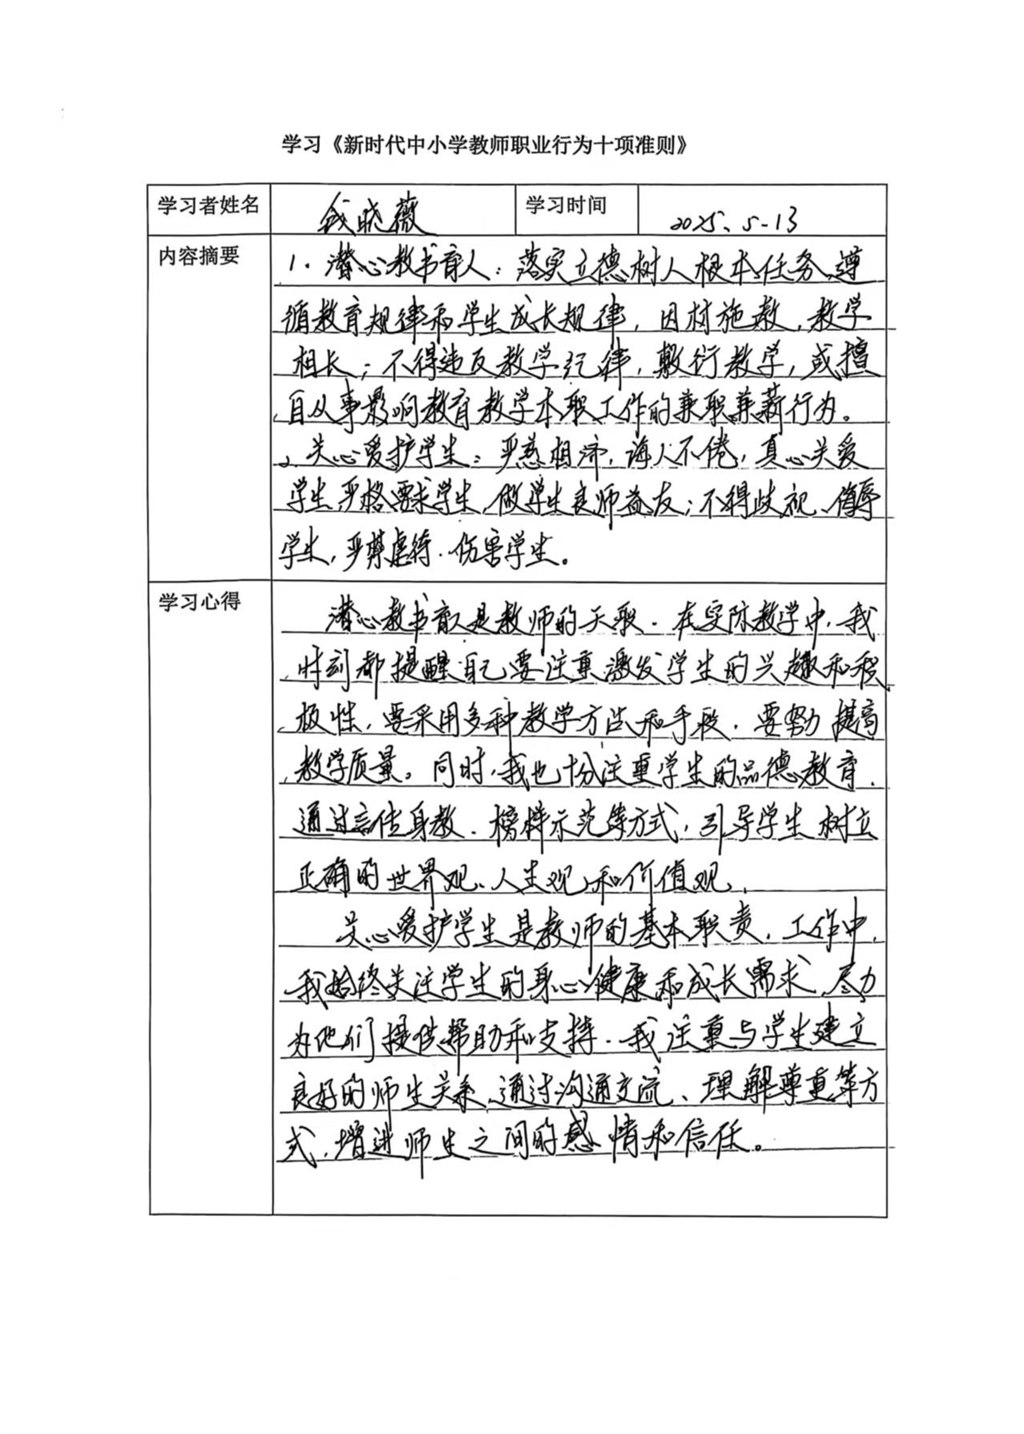 学习《新时代中小学教师职业行为十项准则》
学习者姓名 钱晓薇 学习时间 2025、5-13
内容摘要
1.潜心教书育人：落实立德树人根本任务，遵
循教育规律和学生成长规律，因材施教，教学
相长；不得违反教学纪律，敷衍教学，或擅
自从事影响教育教学本职工作的兼职兼薪行为。
2、关心爱护学生：严慈相济，诲人不倦，真心关爱
学生，严格要求学生，做学生良师益友；不得歧视、侮辱
学生，严禁虐待、伤害学生。
学习心得
潜心教书育人是教师的天职．在实际教学中，我
时刻都提醒自己要注重激发学生的兴趣和积
极性，要采用多种教学方法和手段．要努力提高
教学质量。同时，我也十分注重学生的品德教育，
通过言传身教．榜样示范等方式，引导学生树立
正确的世界观、人生观和价值观．
关心爱护学生是教师的基本职责，工作中，
我始终关注学生的身心健康和成长需求，尽力
为他们提供帮助和支持．我注重与学生建立
良好的师生关系，通过沟通交流、理解尊重等方
式，增进师生之间的感情和信任。